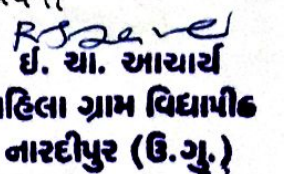 ઈ. ચા. આચાર્ય
મહિલા ગ્રામ વિદ્યાપીઠ
નારદીપુર (ઉ.ગુ.)